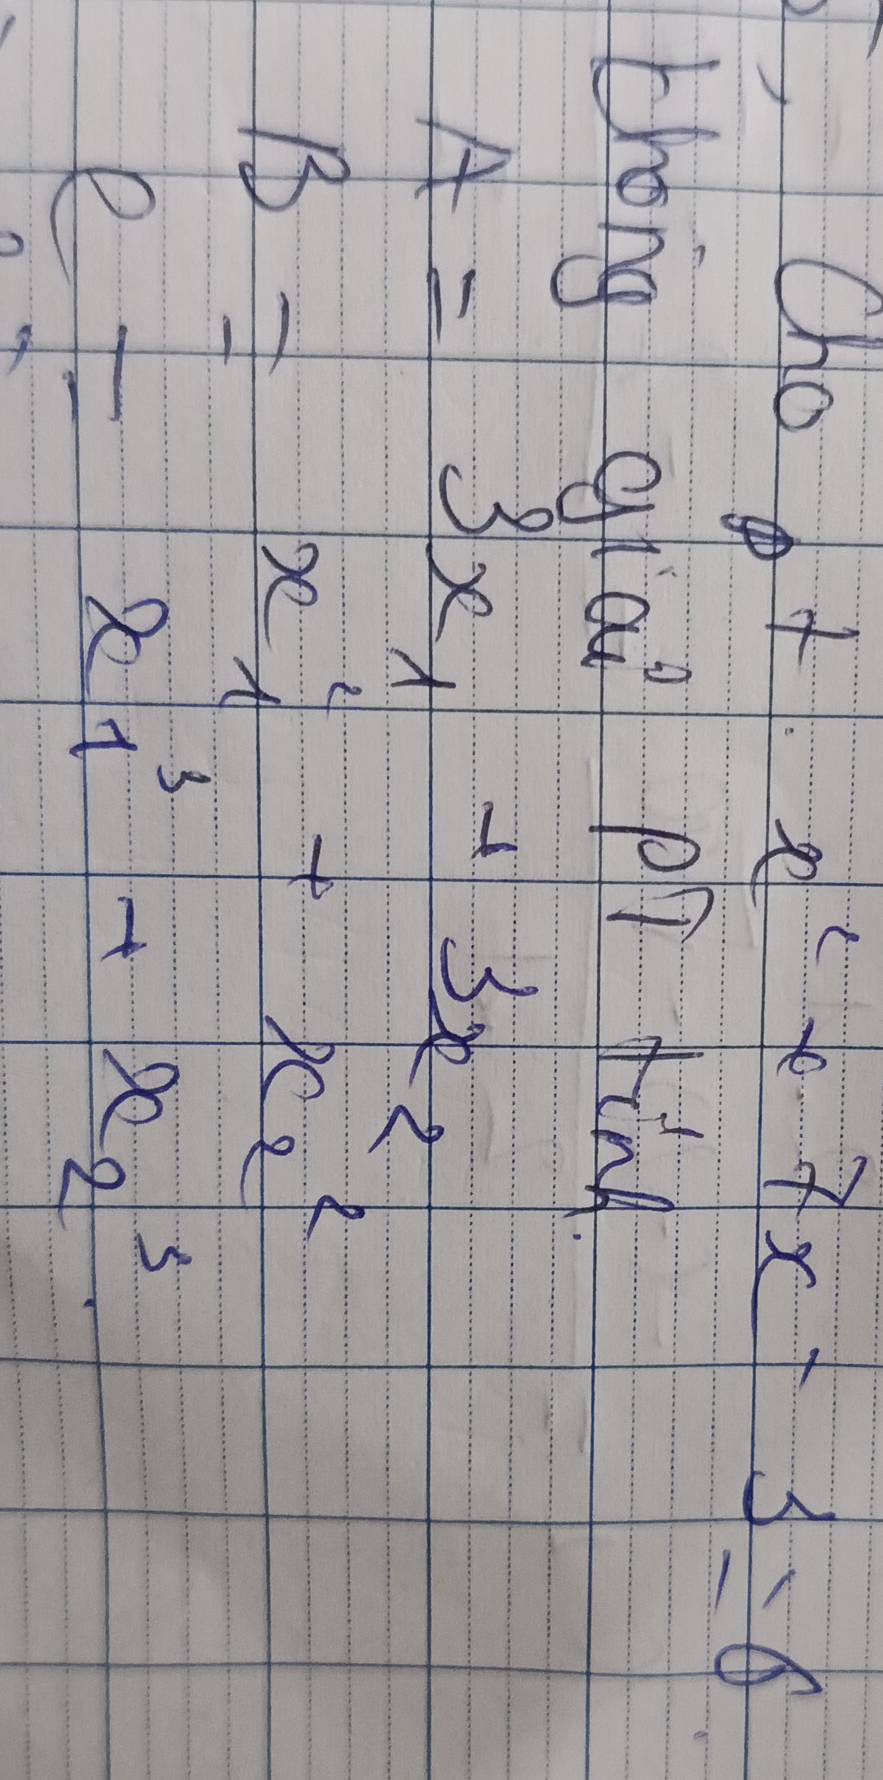 Cho pt. x² + 7x - 3 = 0
không giải PT tính.
A = 3x₁ + 3x₂
B = x₁² + x₂²
C = x₁³ + x₂³.